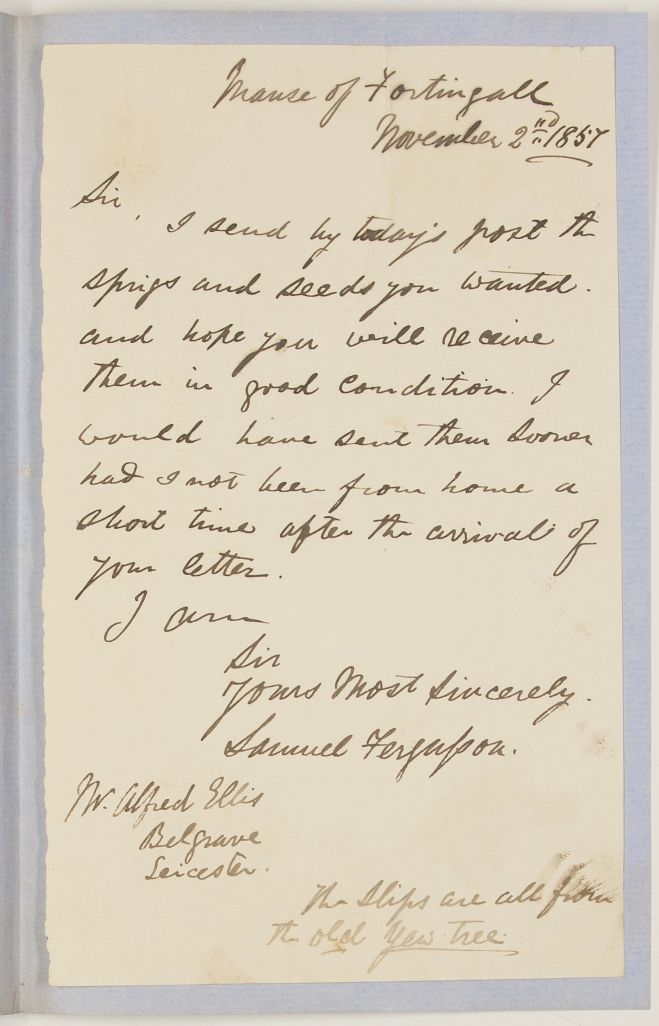 Manse of Fortingall
November 2ND 1857
Sir,
I send by today's post the
sprigs and seeds you wanted.
and hope you will receive
them in good condition. I
would have sent them sooner
had I not been from home a
short time after the arrival of
your letter.
I am
Sir
Yours Most Sincerely.
Samuel Fergusson.
Mr. Alfred Ellis
Belgrave
Leicester.
The slips are all from
the old Yew tree